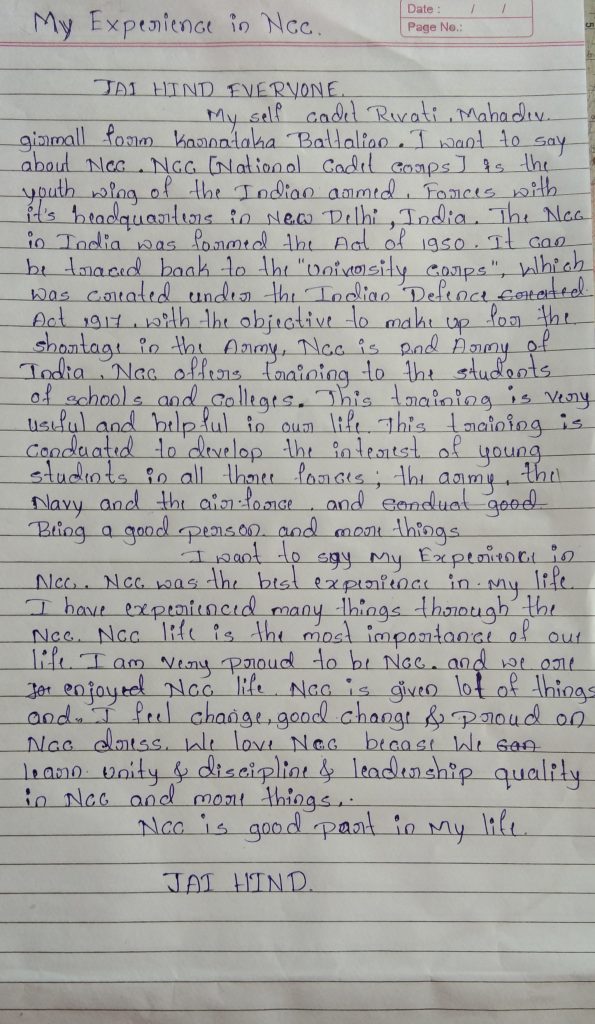 Date : / /
Page No.:
My Experience in Ncc.
JAI HIND EVERYONE.
My self cadet Revati . Mahadev.
girmall form Karnataka Battalion. I want to say
about Ncc. NCC [National Cadet corps] is the
youth wing of the Indian armed. Forces with
it's headquarters in New Delhi, India. The Ncc
in India was formed the Act of 1950. It can
be traced back to the "University corps", which
was created under the Indian Defence created
Act 1917. with the objective to make up for the
shortage in the Army, Ncc is 2nd Army of
India. Ncc offers training to the students
of schools and colleges. This training is very
useful and helpful in our life. This training is
conducted to develop the interest of young
students in all three forces; the army, the
Navy and the air-force. and conduct good
Being a good person. and more things
I want to say My Experience in
Ncc. Ncc was the best experience in my life.
I have experienced many things through the
Ncc. Ncc life is the most importance of our
life. I am very proud to be Ncc. and we are
enjoyed NCC life. Ncc is given lot of things
and. I feel change, good change & proud on
Ncc dress. We love Ncc becase We can
learn unity & discipline & leadership quality
in Ncc and more things..
Ncc is good part in My life.
JAI HIND.